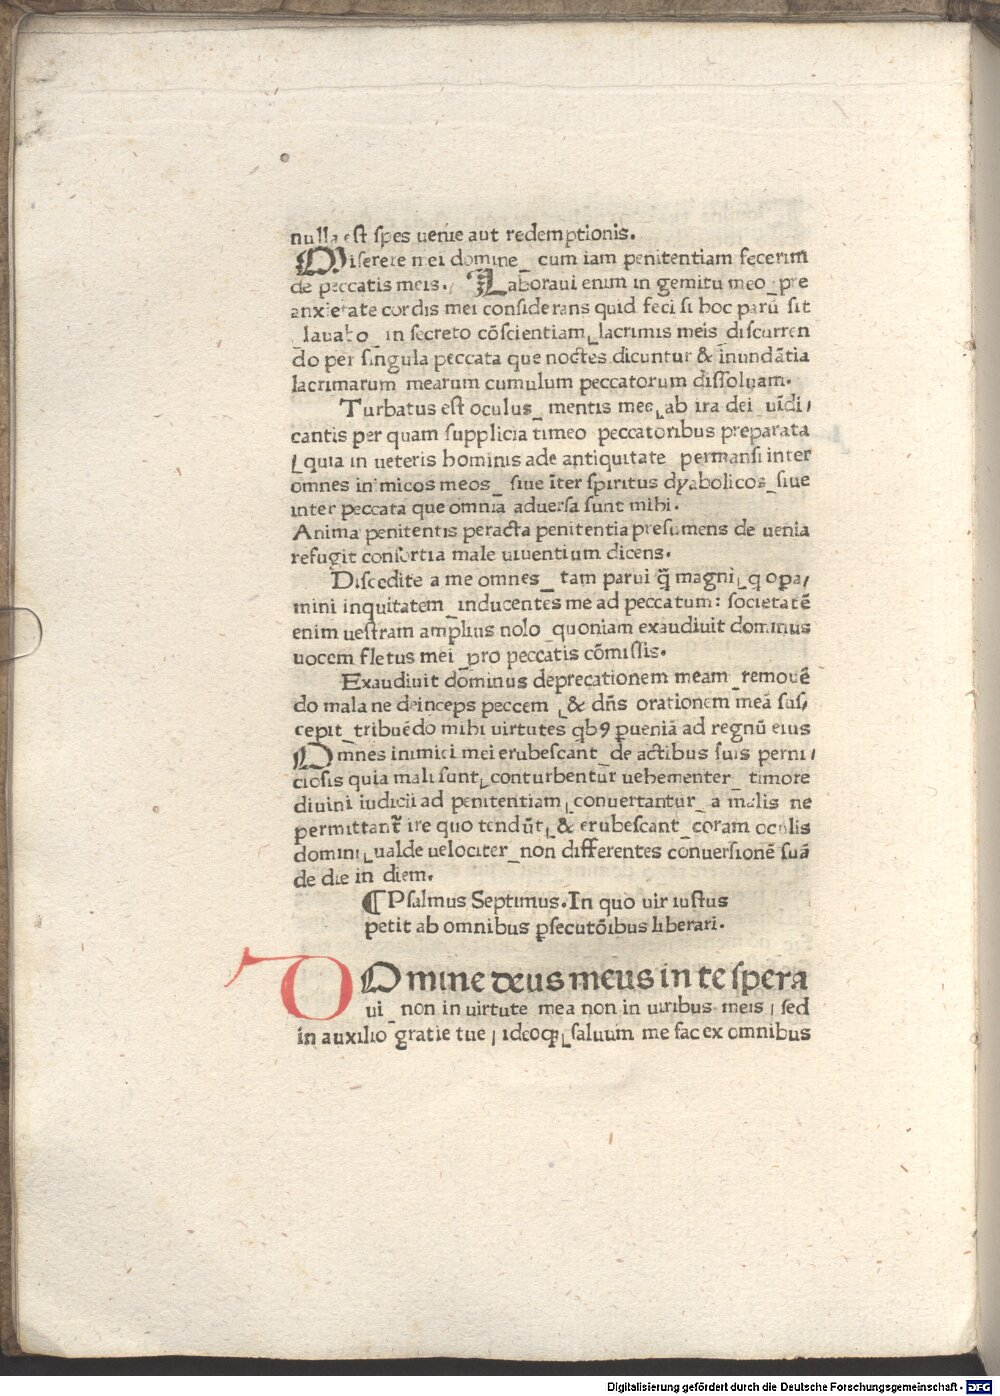 nulla est spes uenie aut redemptionis.
Miserere mei domine_ cum iam penitentiam fecerim
de peccatis meis. Laboraui enim in gemitu meo_pre
anxietate cordis mei considerans quid feci si hoc parū sit
lauabo_in secreto cōscientiam⸤lacrimis meis_discurren
do per singula peccata que noctes dicuntur & inundātia
lacrimarum mearum cumulum peccatorum dissoluam.
Turbatus est oculus_ mentis mee⸤ab ira dei_uīdi/
cantis per quam supplicia timeo peccatoribus preparata
⸤quia in ueteris hominis ade antiquitate permansi inter
omnes inimicos meos_ siue īter spiritus dyabolicos_siue
inter peccata que omnia aduersa sunt mihi.
Anima penitentis peracta penitentia presumens de uenia
refugit consortia male uiuentium dicens.
Discedite a me omnes_ tam parui q̄ magni⸤q opa/
mini inquitatem_inducentes me ad peccatum: societatē
enim uestram amplius nolo_quoniam exaudiuit dominus
uocem fletus mei_pro peccatis cōmissis.
Exaudiuit dominus deprecationem meam_remouē
do mala ne deinceps peccem⸤& dn̄s orationem meā sus/
cepit_tribuēdo mihi uirtutes qb9 ꝑueniā ad regnū eius
Omnes inimici mei erubescant_de actibus suis perni/
ciosis quia mali sunt⸤conturbentur uehementer_timore
diuini iudicii ad penitentiam⸤conuertantur_a malis ne
permittant̄ ire quo tendūt⸤& erubescant_coram oculis
domini⸤ualde uelociter_non differentes conuersionē suā
de die in diem.
¶Psalmus Septimus. In quo uir iustus
petit ab omnibus ꝑsecutōibus liberari.
DOmine deus meus in te spera
ui_non in uirtute mea non in uiribus meis / sed
in auxilio gratie tue / ideoqꝫ⸤saluum me fac ex omnibus
Digitalisierung gefördert durch die Deutsche Forschungsgemeinschaft - DFG